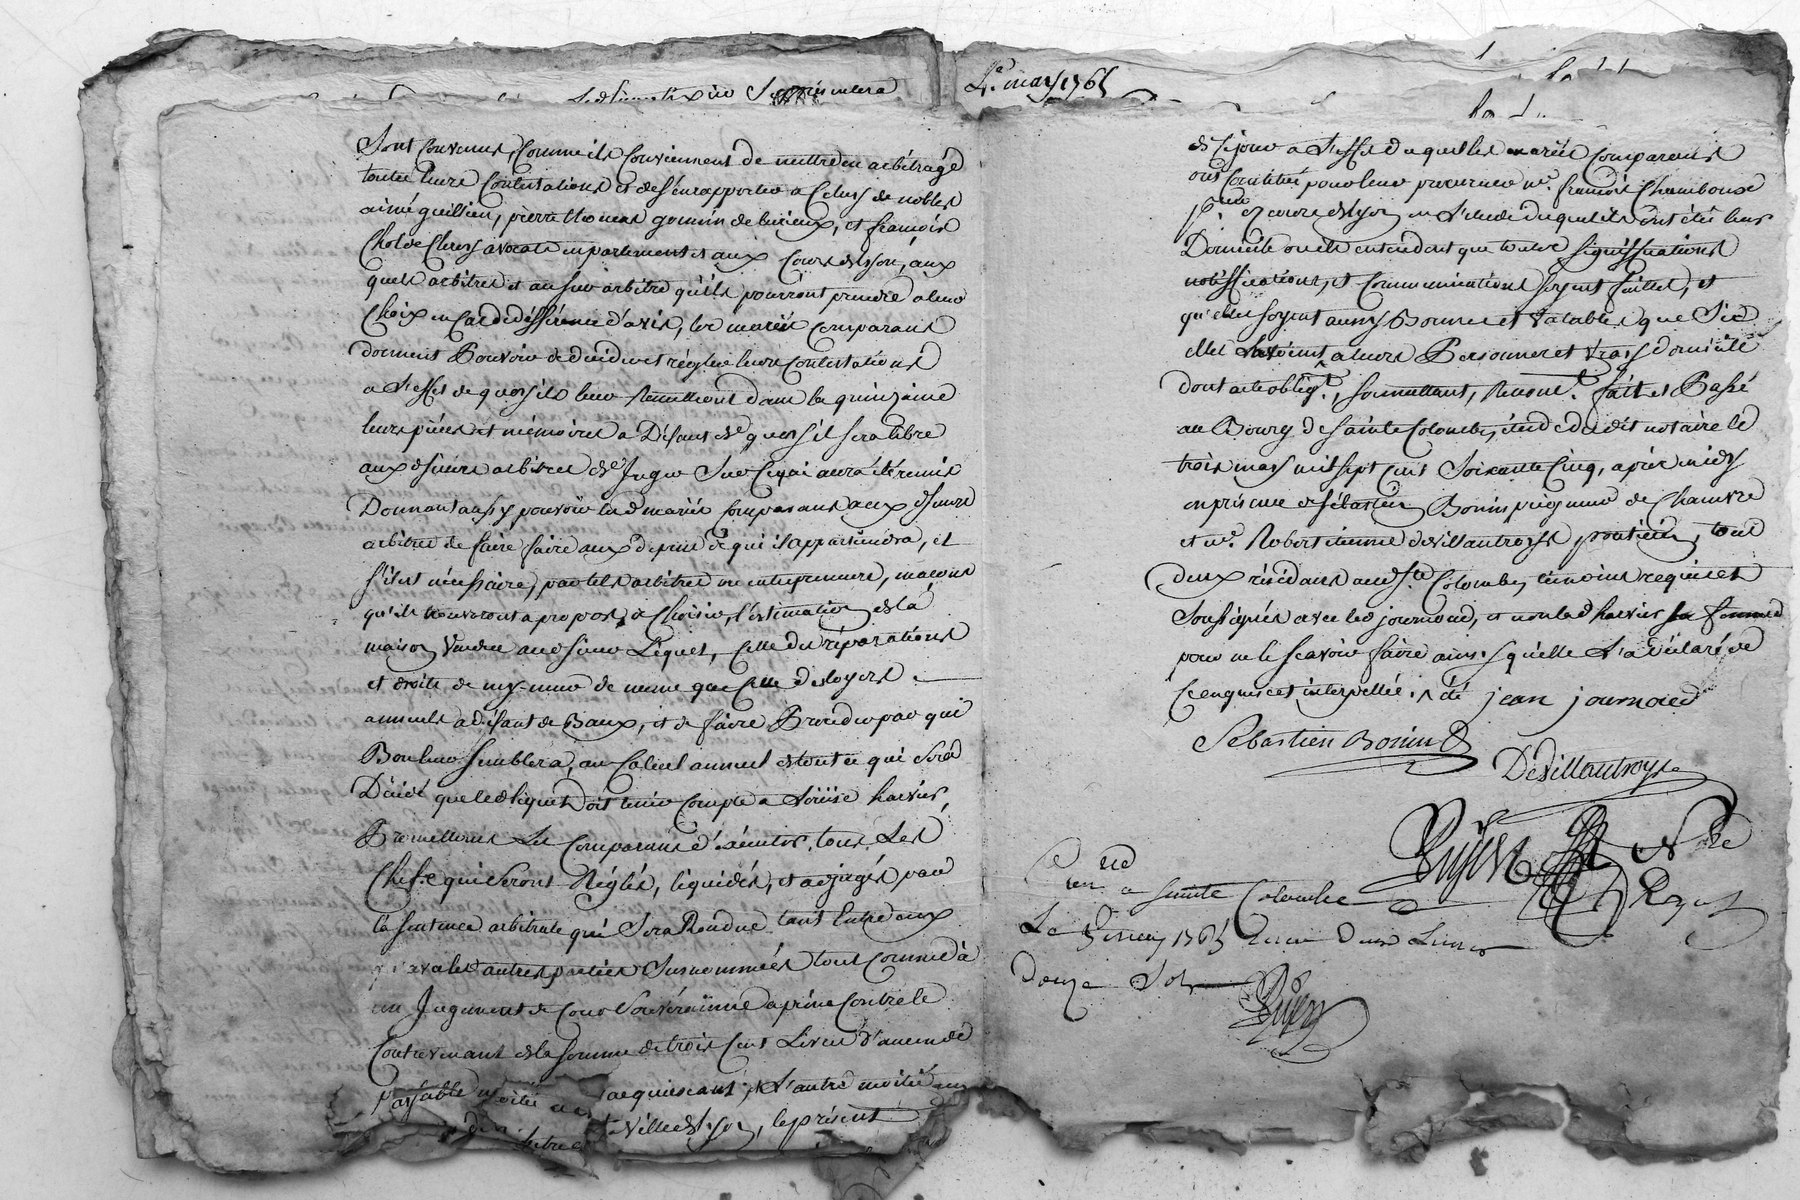 4e. may 1765
Sont convenus, comme ils conviennent de mettre en arbitrage
toutes leurs contestations et de s'en rapporter a celuy de nobles
aimé guillien, pierre thomas gonnin de lurieux, et françois
Chol de Clercy avocats en parlement et aux Cours de Lyon, aux
quels arbitres et au sur arbitre qu'ils pourront prendre a leur
Choix en Cas de différence d'avis, les mariés Comparans
donnent Pouvoir de décider et régler leurs Contestations
a l'effet de quoy ils leur Remettront dans la quinzaine
leurs pièces et mémoires a Défaut de quoy il sera libre
aux dsieurs arbitres de Juger Sur Ce qui aura été remis
Donnant aussy pouvoir lesd mariés Comparans aux dsieurs
arbitres de faire faire aux dépens de qui il appartiendra, et
s'il est nécessaire, par tels arbitres ou entrepreneurs, maçons
qu'ils trouveront a propos de Choisir, l'estimation de la
maison Vendue aud sieur Liquet, Celle des réparations
et droits de my-mur de meme que Celle des loyers
annuels a défaut de Baux, et de faire Proceder par qui
Bon leur semblera, au Calcul annuel de tout ce qui Sera
Décidé que led Liquet Doit tenir Compte a Loüise harvier,
Promettans Les Comparans d'éxécuter tous Les
Chefs qui Seront Réglés, liquidés, et adjugés par
la sentence arbitrale qui Sera Rendue tant Entre eux
qu'avec les autres parties Susnommées tout Comme a
un Jugement de Cour Souverainne a peine Contre le
Contrevenant de la somme de trois Cent Livres d'amende
payable moitié a l'acquiescant, et l'autre moitié au
Ville de Lyon, le présent
de Séjour a l'effet de quoy les mariés Comparans
ont Constitué pour leur procureur me. françois Chambouse
pr. ez cours de Lyon en l'etude duquel ils ont élû leur
Domicile ou ils entendent que toutes significations
notiffications, et Communications soyent faittes, et
qu'elles soyent aussy Bonnes et Valables que Si
elles etoient a leurs Personnes et Vray domicile
dont acte obligt., soumettant, Renont. fait et Passé
au Bourg de Sainte Colombe, étude dudit notaire le
trois may mil sept cent Soixante Cinq, après midy
en présence de Sébastien Bonin peigneur de Chanvre
et me. Robert étienne devillautroyse praticien, tous
deux résidans aud ste. Colombe, témoins requis et
Soussignés avec led journoud, et non lad harvier
pour ne le sçavoir faire ainsi qu'elle l'a déclaré de
Ce enquise et interpellée.
jean journoud
Sebastien Bonin
Devillautroyse
a Sainte Colombe
Le 1765
douze Sols